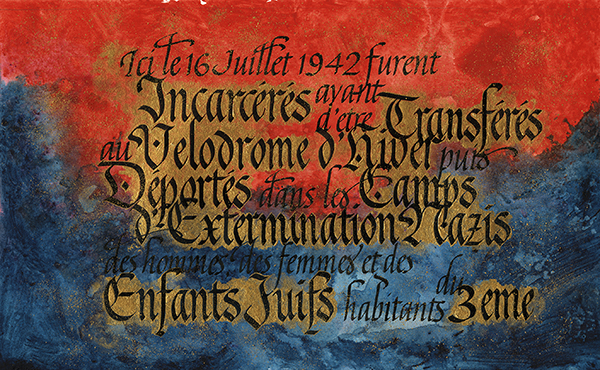 Ici le 16 Juillet 1942 furent
Incarcérés ayant d'être Transférés
au Velodrome d'Hiver puis
Déportés dans les Camps
d'Extermination Nazis
des hommes, des femmes et des
Enfants Juifs habitants du 3eme